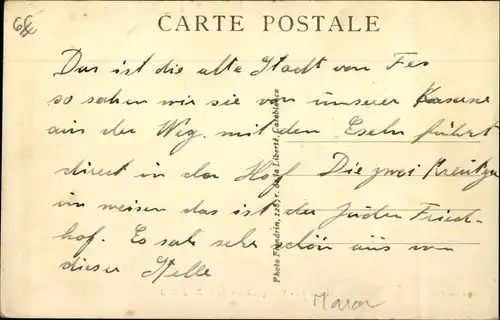 68
CARTE POSTALE
Das ist die alte Stadt von Fes
so sahen wir sie von unserer Kaserne
aus der Weg. mit den Eseln führt
direct in den Hof Die zwei Kreutze
im weisen das ist der Juden Fried-
hof. Es sah sehr schön aus von
dieser Stelle
Photo Flandrin, 128, r. de la Liberté, Casablanca